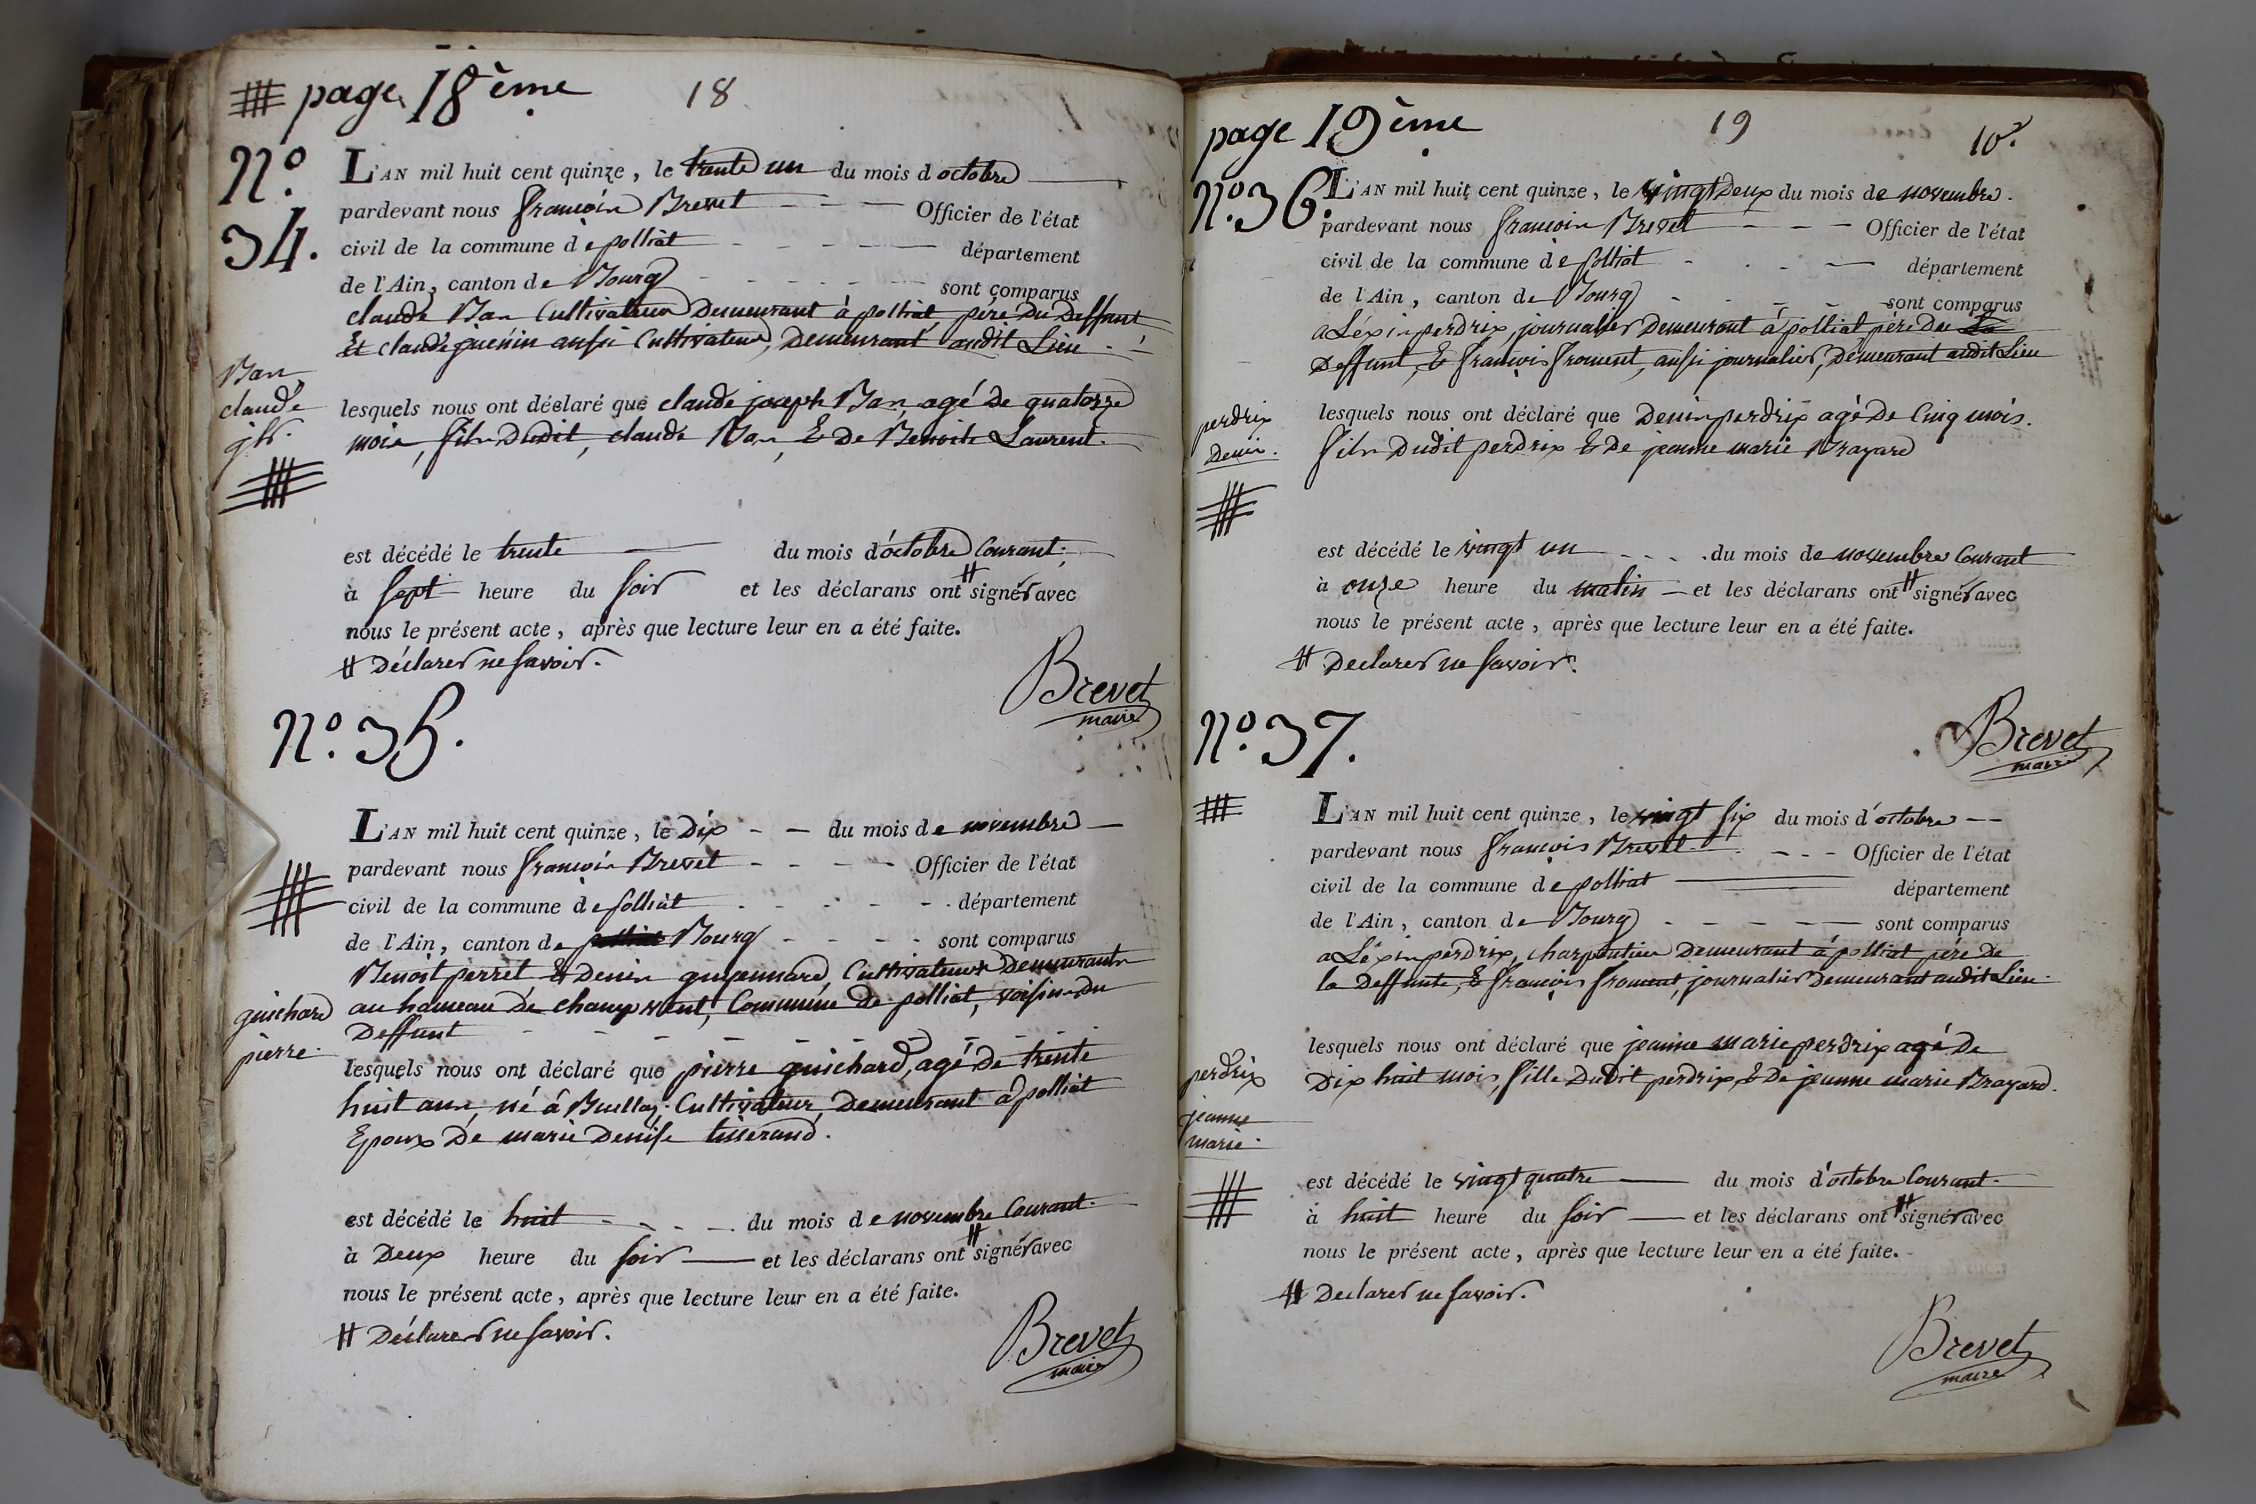 page 18ème 18
N.° 34.
L'AN mil huit cent quinze, le trente un du mois d octobre
pardevant nous françois Brevet Officier de l'état
civil de la commune de polliat département
de l'Ain, canton de Bourg sont comparus
claude Ban Cultivateur Demeurant à polliat père Du Deffunt
Et claude guénin aussi Cultivateur, Demeurant audit Lieu
Ban
claude
jph.
lesquels nous ont déclaré que claude joseph Ban, agé De quatorze
mois, fils Dudit claude Ban, & De Benoite Laurent.
est décédé le trente du mois d'octobre Courant.
à sept heure du soir et les déclarans ont # signér avec
nous le présent acte, après que lecture leur en a été faite.
# Déclarer ne savoir.
Brevet
maire
N.° 35.
L'AN mil huit cent quinze, le Dix du mois de novembre
pardevant nous françois Brevet Officier de l'état
civil de la commune de polliat département
de l'Ain, canton de polliat Bourg sont comparus
Benoit perret & Denis guyennard, Cultivateurs Demeurants
au hameau De champ vent, Commune de polliat, voisins Du
Deffunt
guichard
pierre.
lesquels nous ont déclaré que pierre guichard, agé De trente
huit ans, né à Buellas, Cultivateur, Demeurant à polliat
Epoux De marie Denise tisserand.
est décédé le huit du mois de novembre Courant.
à Deux heure du soir et les déclarans ont # signér avec
nous le présent acte, après que lecture leur en a été faite.
# Déclarer ne savoir.
Brevet
maire
page 19ème 19 10e.
N.° 36.
L'AN mil huit cent quinze, le vingt Deux du mois de novembre.
pardevant nous françois Brevet Officier de l'état
civil de la commune de polliat département
de l'Ain, canton de Bourg sont comparus
aLéxis perdrix, journalier Demeurant à polliat père Du
Deffunt, & françois froment, aussi journalier, Demeurant audit Lieu
perdrix
Denis.
lesquels nous ont déclaré que Denis perdrix agé De Cinq mois.
fils Dudit perdrix & De jeanne marie Brayard
est décédé le vingt un du mois de novembre Courant
à onze heure du matin et les déclarans ont # signér avec
nous le présent acte, après que lecture leur en a été faite.
# Declarer ne savoir.
Brevet
maire
N.° 37.
L'AN mil huit cent quinze, le vingt six du mois d'octobre
pardevant nous françois Brevet Officier de l'état
civil de la commune de polliat département
de l'Ain, canton de Bourg sont comparus
aLéxis perdrix, charpentier Demeurant à polliat père De
la Deffunte, & françois froment, journalier Demeurant audit Lieu.
perdrix
jeanne
marie.
lesquels nous ont déclaré que jeanne marie perdrix agé De
Dix huit mois, fille Dudit perdrix, & De jeanne marie Brayard.
est décédé le vingt quatre du mois d'octobre Courant.
à huit heure du soir et les déclarans ont # signér avec
nous le présent acte, après que lecture leur en a été faite.
# Declarer ne savoir.
Brevet
maire